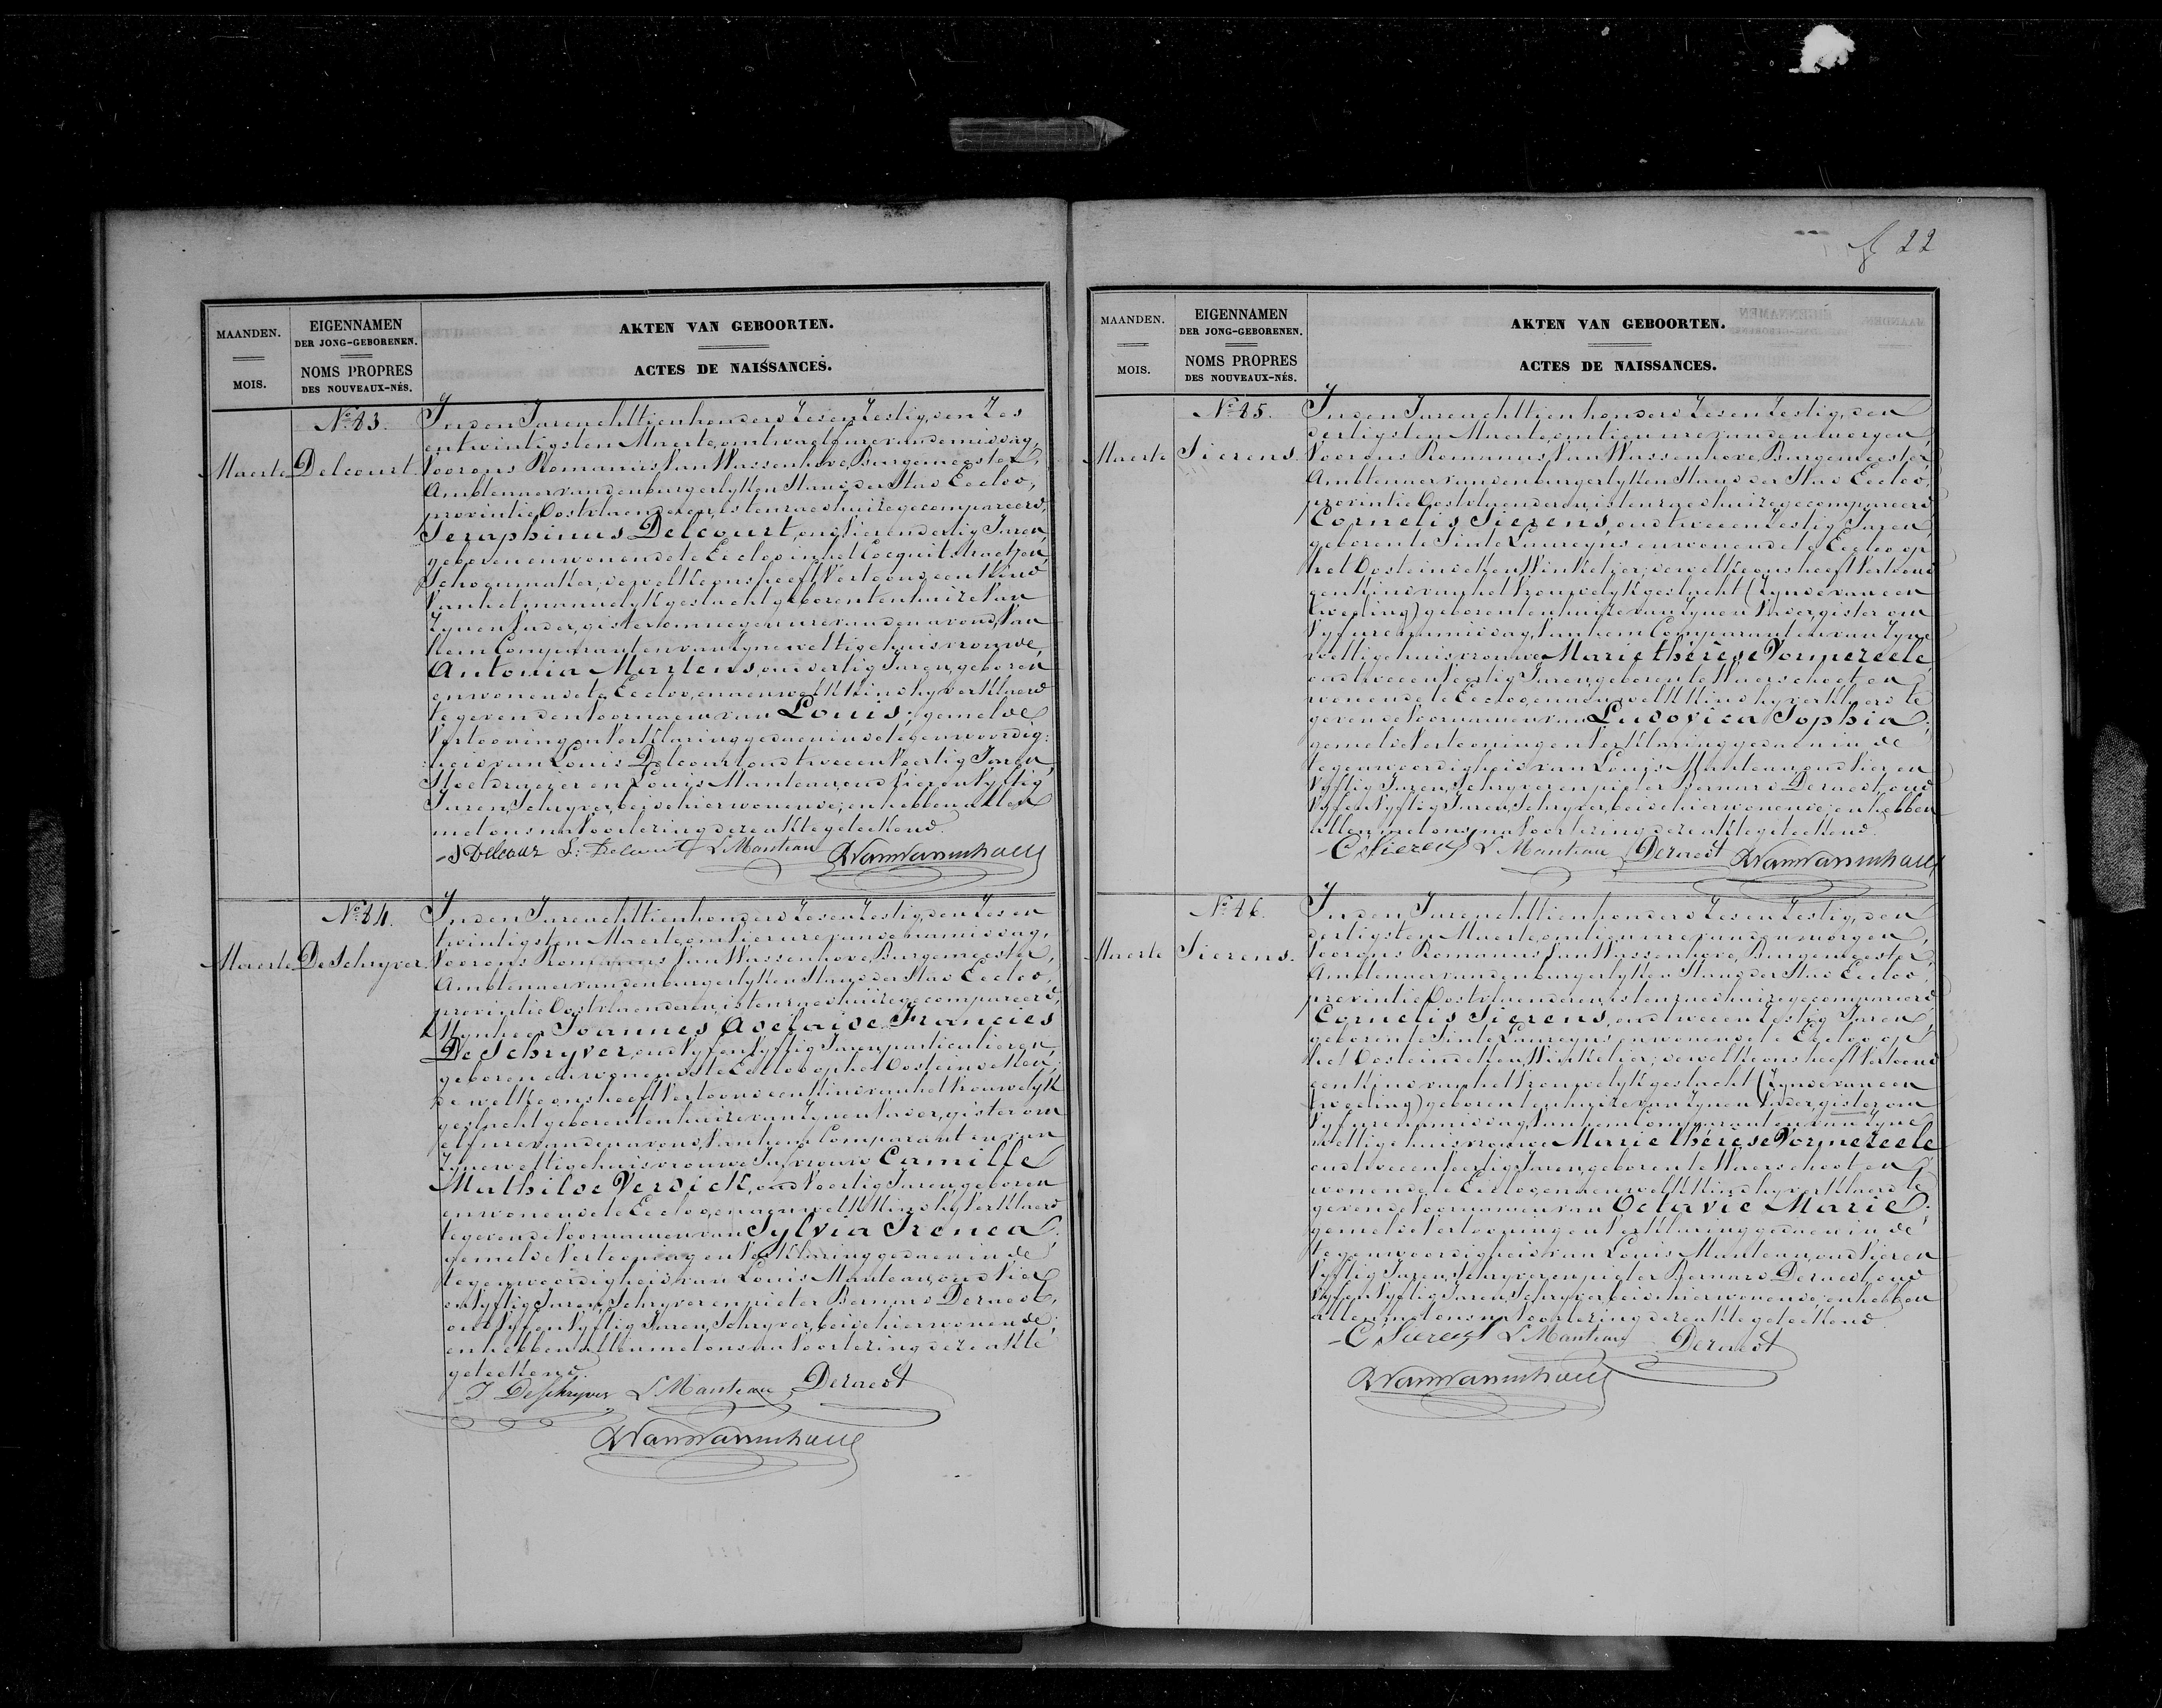 MAANDEN.
MOIS.
EIGENNAMEN
DER JONG-GEBORENEN.
NOMS PROPRES
DES NOUVEAUX-NÉS.
AKTEN VAN GEBOORTEN.
ACTES DE NAISSANCES.
Nº 83.
Maerte
Delcourt.
In den Jare achttien honderd zes en zestig, den zes
en twintigsten Maerte, om twaelf ure van de middag,
Voor ons Romanus Van Wassenhove, Burgemeester,
Ambtenaer van den burgerlyken Stand der Stad Eecloo,
provintie Oostvlaenderen, is ten raedhuize gecompareerd,
Seraphinus Delcourt, oud vier en dertig Jaren,
geboren en wonende te Eecloo in het Cocquit straetjen,
Schoenmaker, dewelke ons heeft vertoond een Kind
van het mannelyk geslacht geboren ten huize van
zynen Vader, gister om negen ure van den avond, van
hem Comparant en van zyne wettige huisvrouwe
Antonia Martens, oud dertig Jaren, geboren
en wonende te Eecloo, en aen welk Kind hy verklaerd
te geven den voornaem van Louis; gemelde
Vertooning en Verklaring gedaen in de tegenwoordig:
:heid van Louis Delcourt oud twee en Veertig Jaren,
Stoeldraeijer en Louis Manteau, oud vier en vyftig
Jaren, Schryver, beide hier wonende; en hebben allen
met ons na Voorlezing deze akte geteekend.
S Delcour L: Delcourt L Manteau RVanWassenhove
Nº 84.
Maerte
De Schryver.
In den Jare achttien honderd zes en zestig, den zes en
twintigsten Maerte, om vier ure van de namiddag,
Voor ons Romanus Van Wassenhove, Burgemeester,
Ambtenaer van den burgerlyken Stand der Stad Eecloo,
provintie Oostvlaenderen, is ten raedhuize gecompareerd,
Mynheer Joannes Adelaide Francies
De Schryver, oud vyf en vyftig Jaren, particulieren,
geboren en wonende te Eecloo op het Oosteindeken,
dewelke ons heeft vertoond een Kind van het Vrouwelyk
geslacht geboren ten huize van zynen Vader, gister om
elf ure van den avond, van hem Comparant en van
zyne wettige huisvrouwe Jufvrouw Camille
Mathilde Versick, oud Veertig Jaren, geboren
en wonende te Eecloo, en aen welk Kind hy verklaerd
te geven de Voornamen van Sylvia Irenea;
gemelde Vertooning en Verklaring gedaen in de
tegenwoordigheid van Louis Manteau, oud Vier
en Vyftig Jaren, Schryver en pieter Bernard Deraedt,
oud vyf en Vyftig Jaren, Schryver, beide hier wonende;
en hebben allen met ons na Voorlezing deze akte
geteekend.
J. DeSchryver L Manteau Deraedt
RVanWassenhove
22
MAANDEN.
MOIS.
EIGENNAMEN
DER JONG-GEBORENEN.
NOMS PROPRES
DES NOUVEAUX-NÉS.
AKTEN VAN GEBOORTEN.
ACTES DE NAISSANCES.
Nº 85.
Maerte
Sierens.
In den Jare achttien honderd zes en zestig, den
dertigsten Maerte, om tien ure van den morgen,
Voor ons Romanus Van Wassenhove, Burgemeester,
Ambtenaer van den burgerlyken Stand der Stad Eecloo,
provintie Oostvlaenderen, is ten raedhuize gecompareerd,
Cornelis Sierens, oud twee en zestig Jaren,
geboren te Sinte Laureyns en wonende te Eecloo op
het Oosteindeken, Winkelier; dewelke ons heeft vertoond
een Kind van het Vrouwelyk geslacht (zynde van een
tweeling) geboren ten huize van zynen Vader, gister om
Vyf ure namiddag, van hem Comparant en van zyne
wettige huisvrouwe Marie thérèse Vormezeele,
oud twee en Veertig Jaren, geboren te Waerschoot en
wonende te Eecloo, en aen welk Kind hy verklaerd te
geven de Voornamen van Ludovica Sophia;
gemelde Vertooning en Verklaring gedaen in de
tegenwoordigheid van Louis Manteau, oud Vier en
Vyftig Jaren, Schryver en pieter Bernard Deraedt, oud
Vyf en Vyftig Jaren, Schryver, beide hier wonende; en hebben
allen met ons na Voorlezing deze akte geteekend.
C Sierens L Manteau Deraedt RVanWassenhove
Nº 86.
Maerte
Sierens.
In den Jare achttien honderd zes en zestig, den
dertigsten Maerte, om tien ure van den morgen,
Voor ons Romanus Van Wassenhove, Burgemeester,
Ambtenaer van den burgerlyken Stand der Stad Eecloo,
provintie Oostvlaenderen, is ten raedhuize gecompareerd,
Cornelis Sierens, oud twee en zestig Jaren,
geboren te Sinte Laureyns en wonende te Eecloo op
het Oosteindeken, Winkelier; dewelke ons heeft Vertoond
een Kind van het Vrouwelyk geslacht (zynde van een
tweeling) geboren ten huize van zynen Vader, gister om
Vyf ure namiddag, van hem Comparant en van zyne
wettige huisvrouwe Marie thérèse Vormezeele
oud twee en Veertig Jaren, geboren te Waerschoot en
wonende te Eecloo, en aen welk Kind hy verklaerd te
geven de Voornamen van Octavie Marie;
gemelde Vertooning en Verklaring gedaen in de
tegenwoordigheid van Louis Manteau, oud Vier en
Vyftig Jaren, Schryver en pieter Bernard Deraedt, oud
Vyf en Vyftig Jaren, Schryver, beide hier wonende; en hebben
allen met ons na Voorlezing deze akte geteekend.
C Sierens L Manteau Deraedt
RVanWassenhove